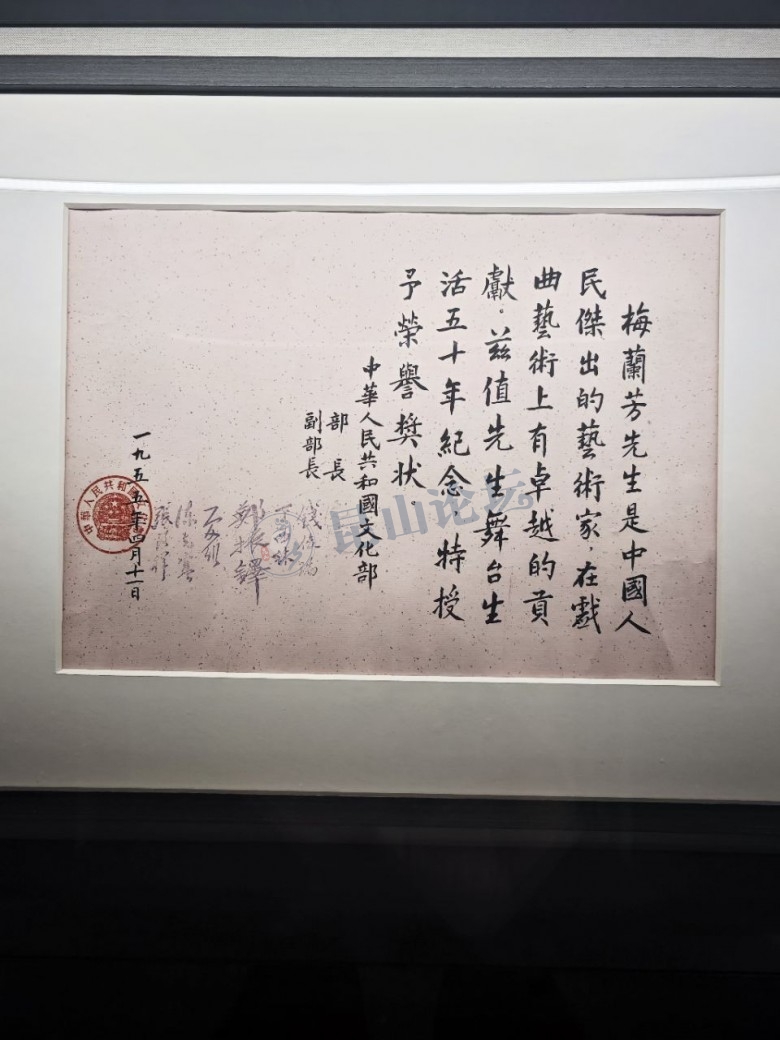 梅蘭芳先生是中國人
民傑出的藝術家，在戲
曲藝術上有卓越的貢
獻。茲值先生舞台生
活五十年紀念，特授
予榮譽獎狀。
中華人民共和國文化部
部長
副部長
錢俊瑞
鄭振鐸
一九五五年四月十一日
中华人民共和国
昆山论坛